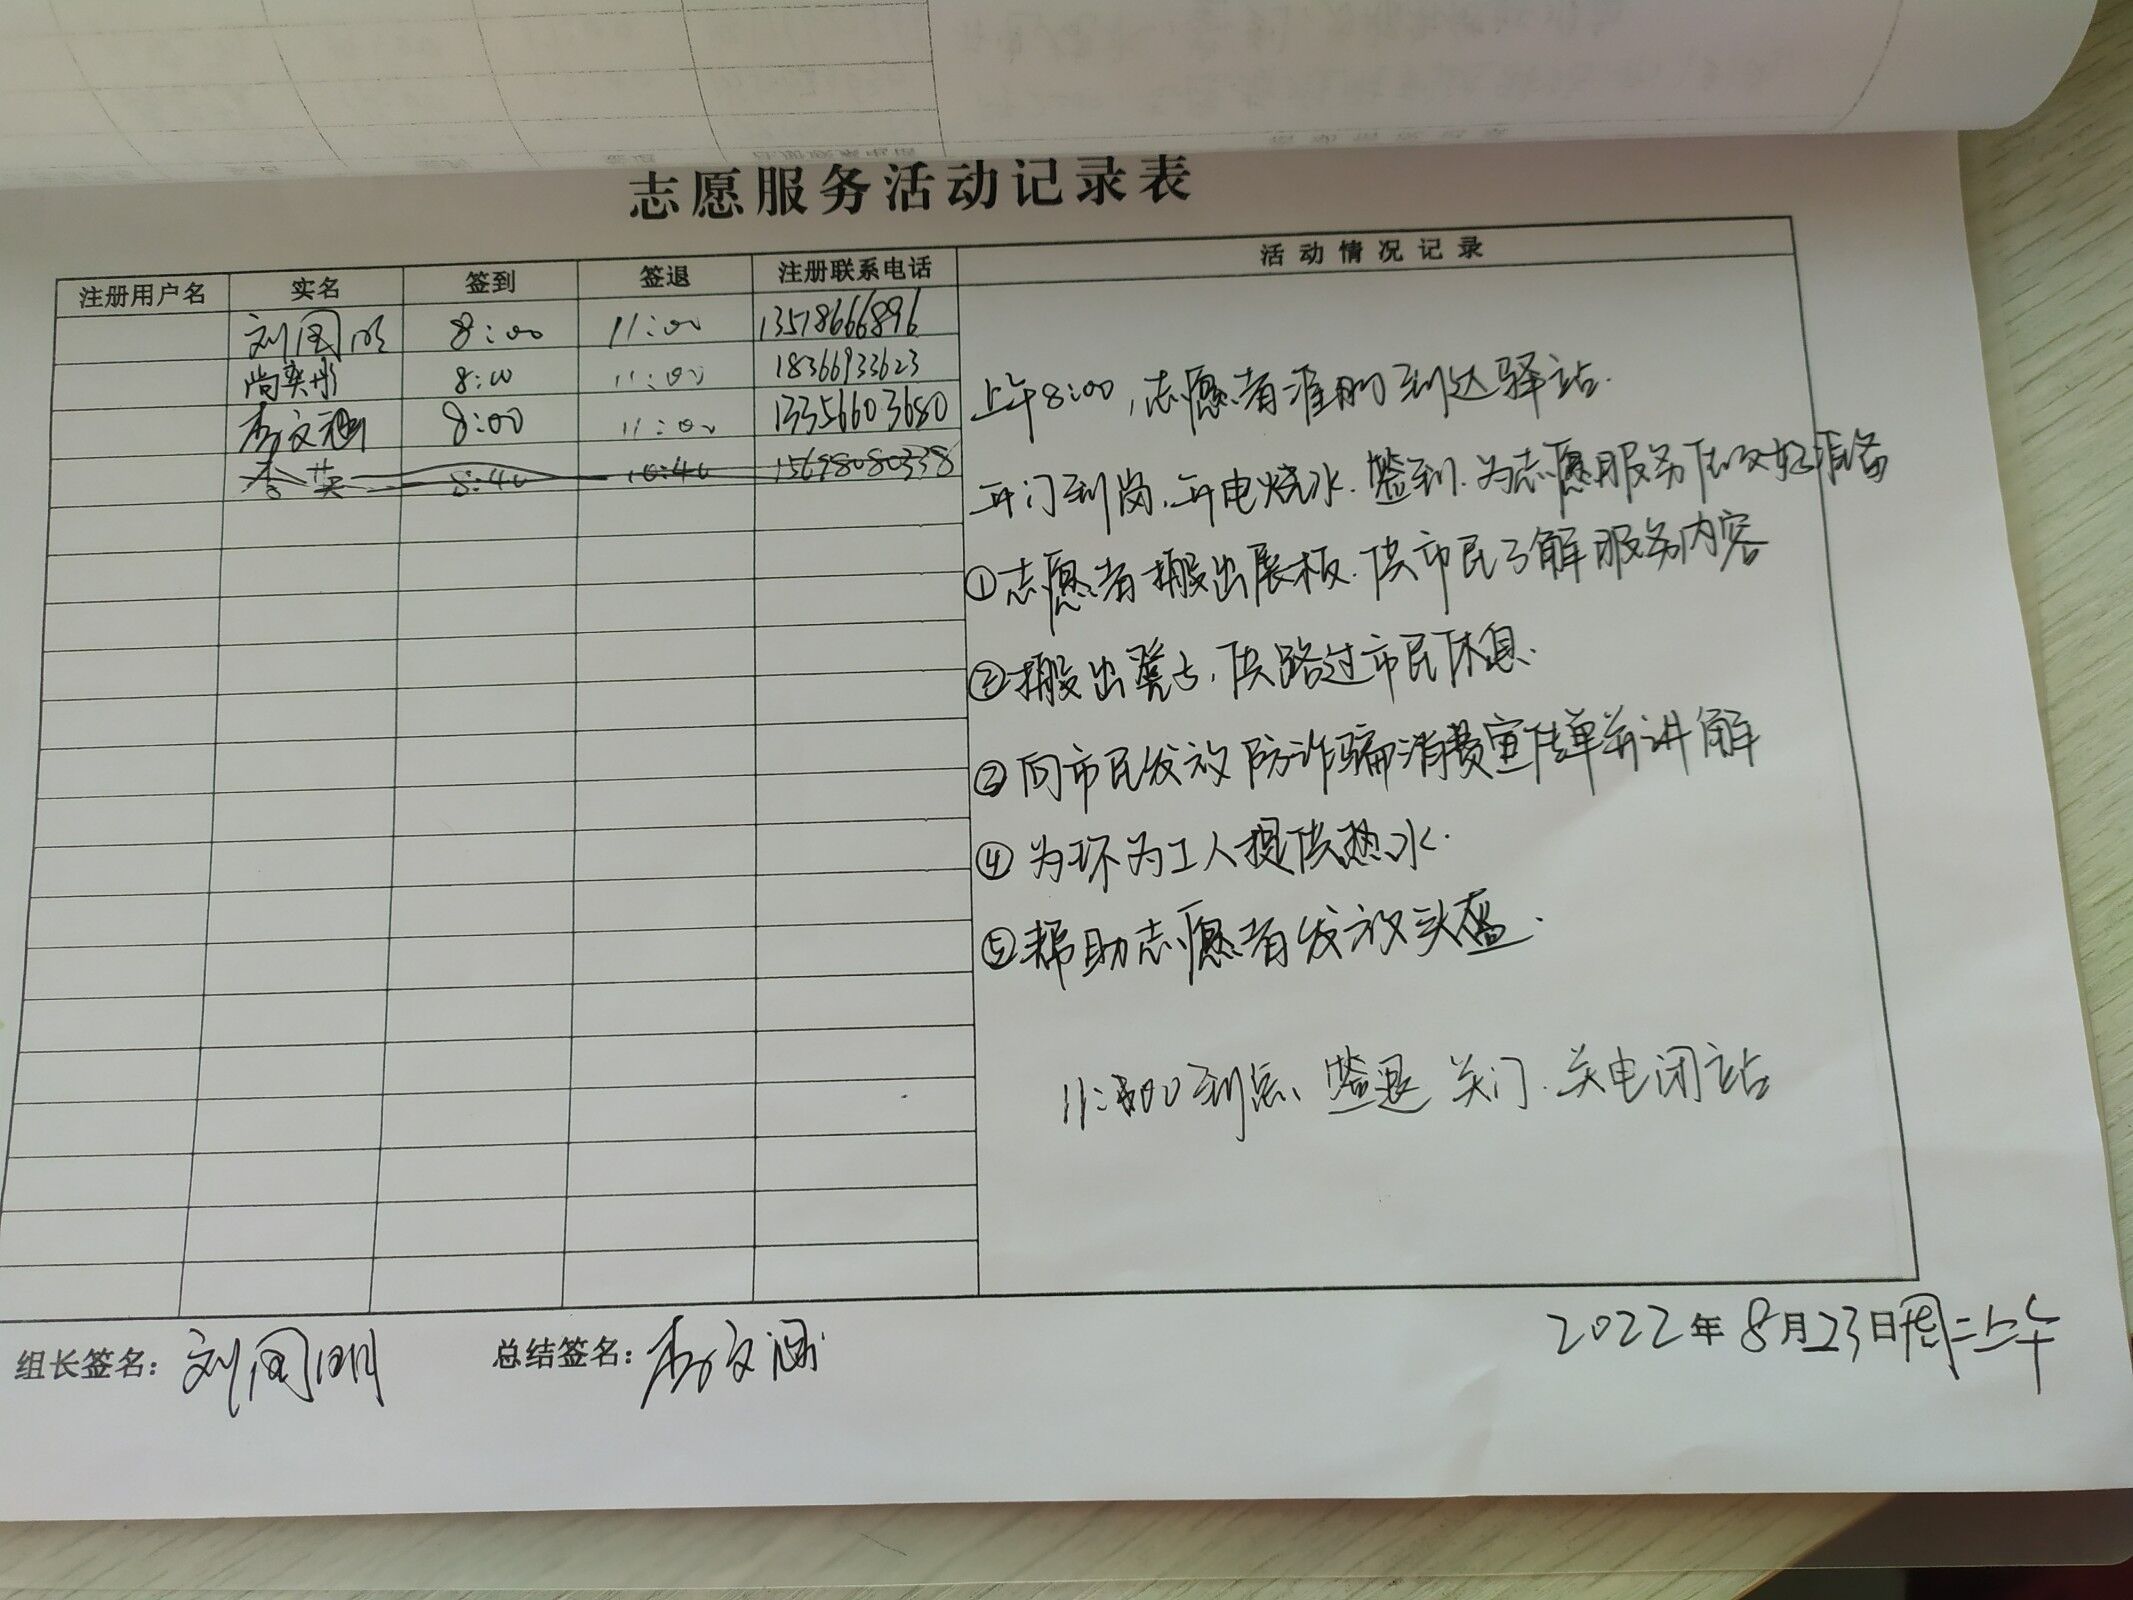 志愿服务活动记录表
注册用户名 实名 签到 签退 注册联系电话 活动情况记录
刘国明 8:00 11:00 13518666896
尚奕彤 8:00 11:00 18366933623
李文涵 8:00 11:00 13356603680
李英 8:40 10:40 15698080338
上午8:00,志愿者准时到达驿站.
开门到岗.开电烧水.签到.为志愿服务作好准备
①志愿者搬出展板.供市民了解服务内容
②搬出凳子,供路过市民休息.
③向市民发放防诈骗消费宣传单并讲解
④为环为工人提供热水.
⑤帮助志愿者发放头盔.
11:00到点、签退 关门.关电闭站
组长签名: 刘国明 总结签名: 李文涵 2022年8月23日周二上午